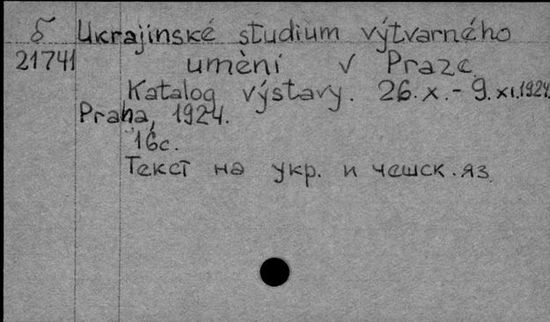 Б Ukrajinské studium výtvarného
21741 umèní v Praze
Katalog výstavy. 26.x.-9.xi.1924
Praha, 1924.
16с.
Текст на укр. и чешск.яз